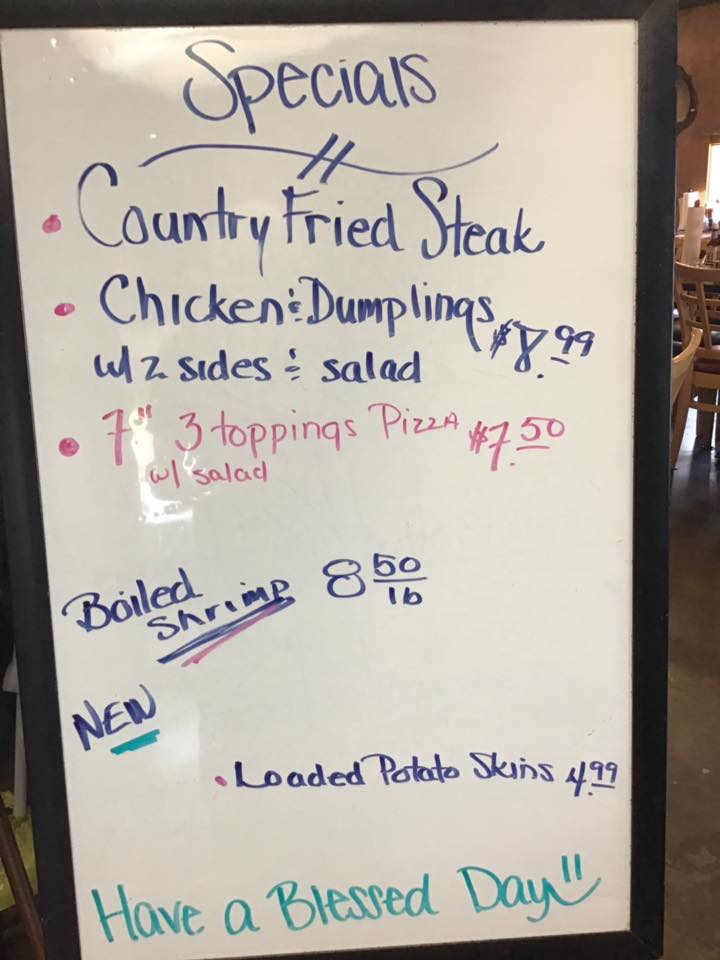 Specials
• Country Fried Steak
• Chicken & Dumplings
w/ 2 sides & salad $8.99
• 7" 3 toppings Pizza $7.50
w/ salad
Boiled
Shrimp 8 50/lb
NEW
• Loaded Potato Skins 4.99
Have a Blessed Day